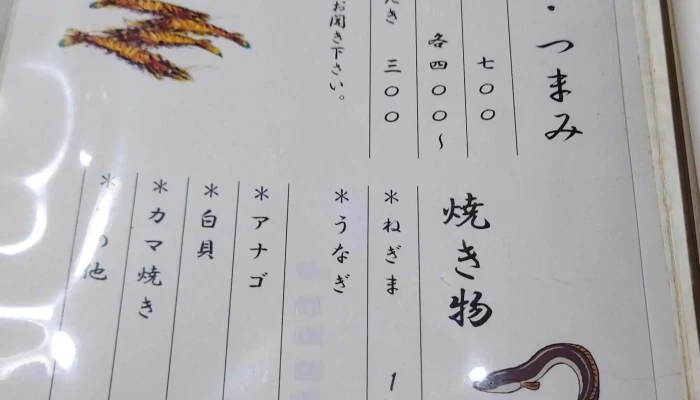 ・つまみ
七〇〇
各四〇〇～
き 三〇〇
お聞き下さい。
焼き物
＊ねぎま 1
＊うなぎ
＊アナゴ
＊白貝
＊カマ焼き
＊の他